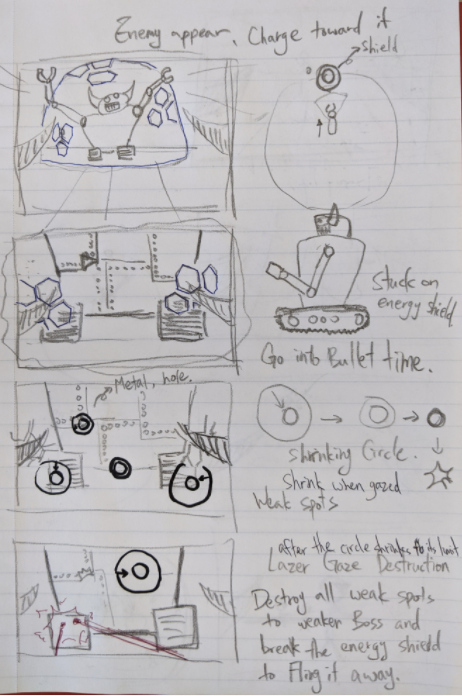 Enemy appear, Charge toward it
shield
Stuck on
energy shield
Go into Bullet time.
Metal, hole.
shrinking Circle.
shrink when gazed
Weak spots
after the circle shrinks to its limit
Lazer Gaze Destruction
Destroy all weak spots
to weaker Boss and
break the energy shield
to Fling it away.